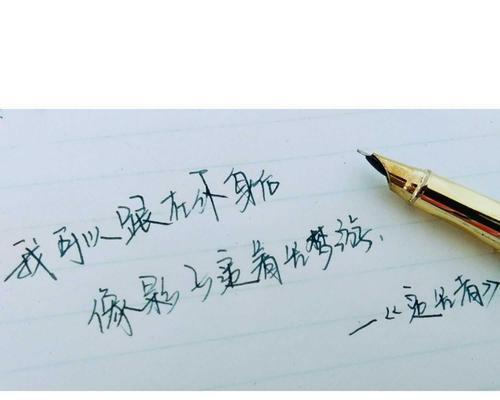 我可以跟在你身后
像影子追着光梦游
—《追光者》